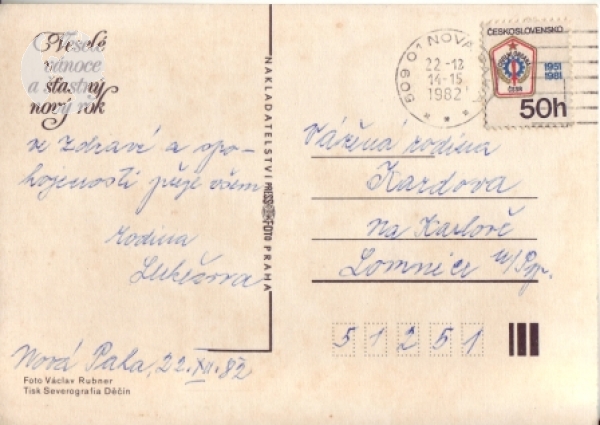 Veselé
vánoce
a šťastný
nový rok
ve zdraví a spo-
kojenosti přeje všem
rodina
Lukešova
Nová Paka, 22. XII. 82
Foto Václav Rubner
Tisk Severografia Děčín
NAKLADATELSTVÍ PRESSFOTO PRAHA
509 01 NOVÁ
22-12
14-15
1982
ČESKOSLOVENSKO
1951
1981
50h
Vážená rodina
Kardova
Na Karlově
Lomnice n/Pop.
51251